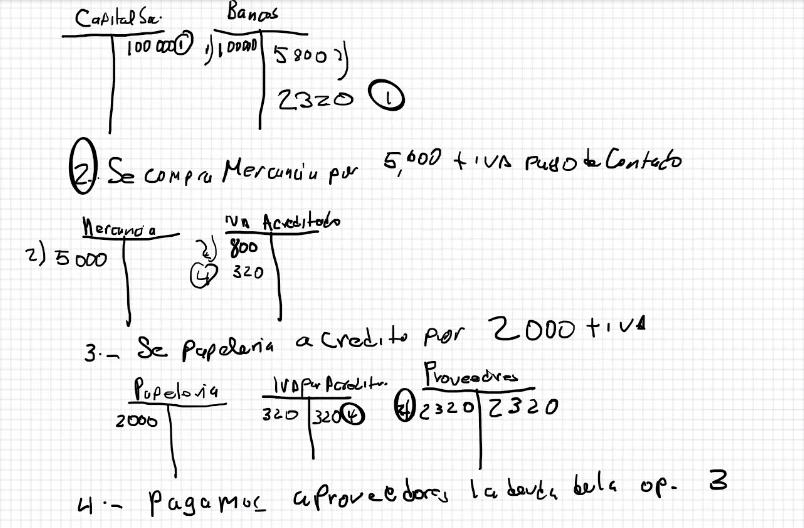 Capital So. Bancos
100 000 1 1) 100000 5 800 2)
2320 1
2. Se compra Mercancia por 5,000 + IVA pago de Contado
Mercancia IVA Acreditado
2) 5 000 2) 800
4 320
3.- Se Papeleria a credito por 2000 + IVA
Papeleria IVA por Acredita. Proveedores
2000 320 320 4 4 2320 2320
4.- Pagamos a proveedores la deuda de la op. 3